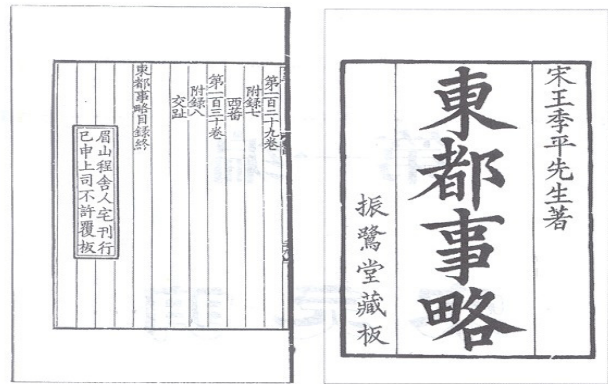 宋王季平先生著
東都事略
振鷺堂藏板
第一百二十九卷
附錄七
西蕃
第一百三十卷
附錄八
交趾
東都事略目錄終
眉山程舍人宅刊行
己申上司不許覆板